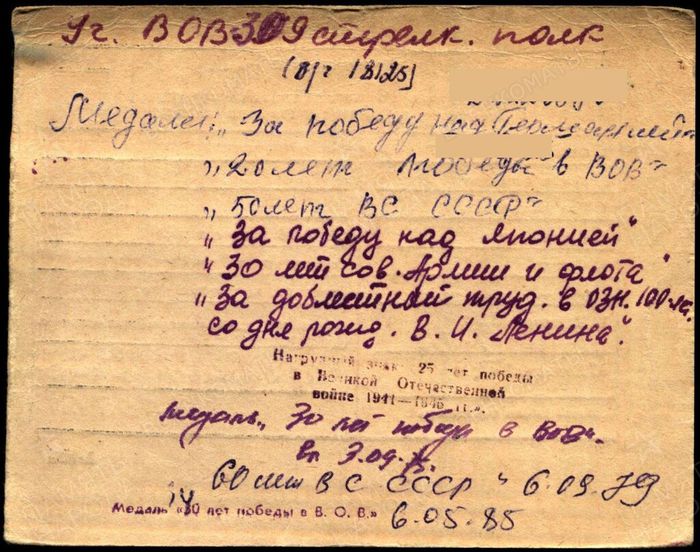 Уч. ВОВ 309 стрелк. полк
(в/ч 18125)
Медали: „За победу над Германией"
„20 лет победы в ВОВ"
„50 лет ВС СССР"
„За победу над Японией"
„30 лет сов. Армии и флота"
„За доблестный труд. в озн. 100-л.
со дня рожд. В. И. Ленина".
Нагрудный знак 25 лет победы
в Великой Отечественной
войне 1941—1945 гг.».
медаль „30 лет победы в ВОВ".
60 лет ВС СССР" 6.09.79
Медаль «40 лет победы в В. О. В.» 6.05.85